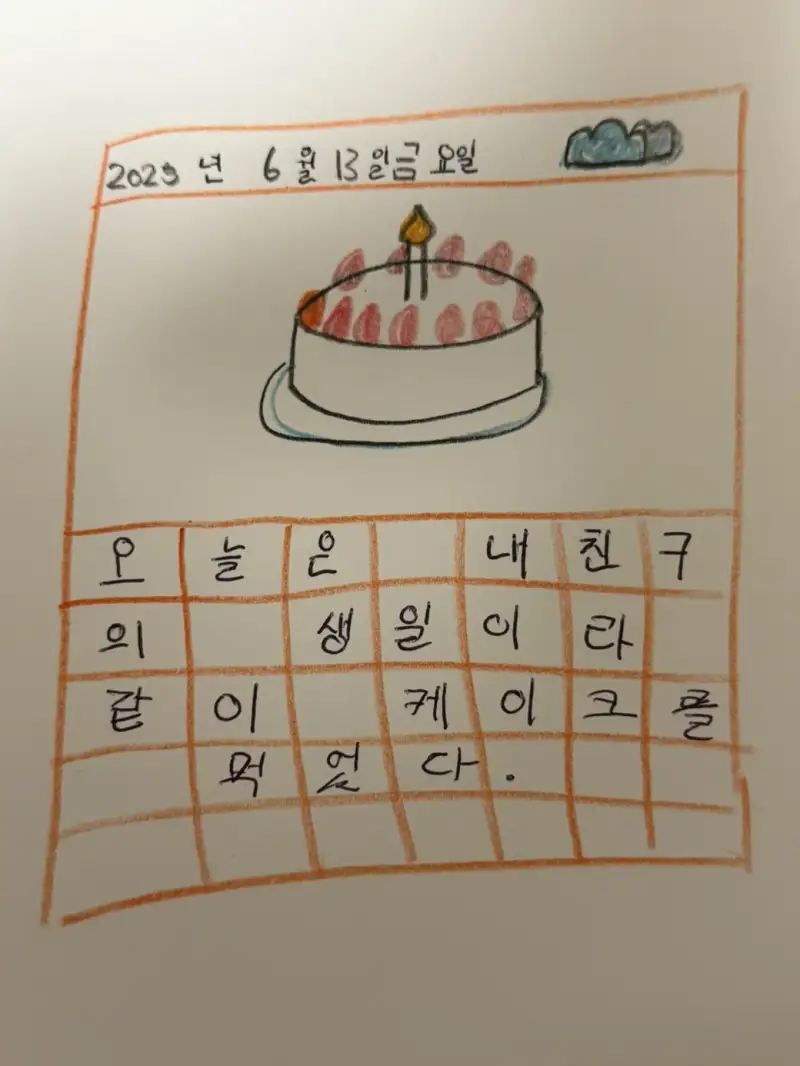 2025 년 6 월 13 일 금 요일
오늘은 내 친구
의 생일이라
같이 케이크를
먹었다.